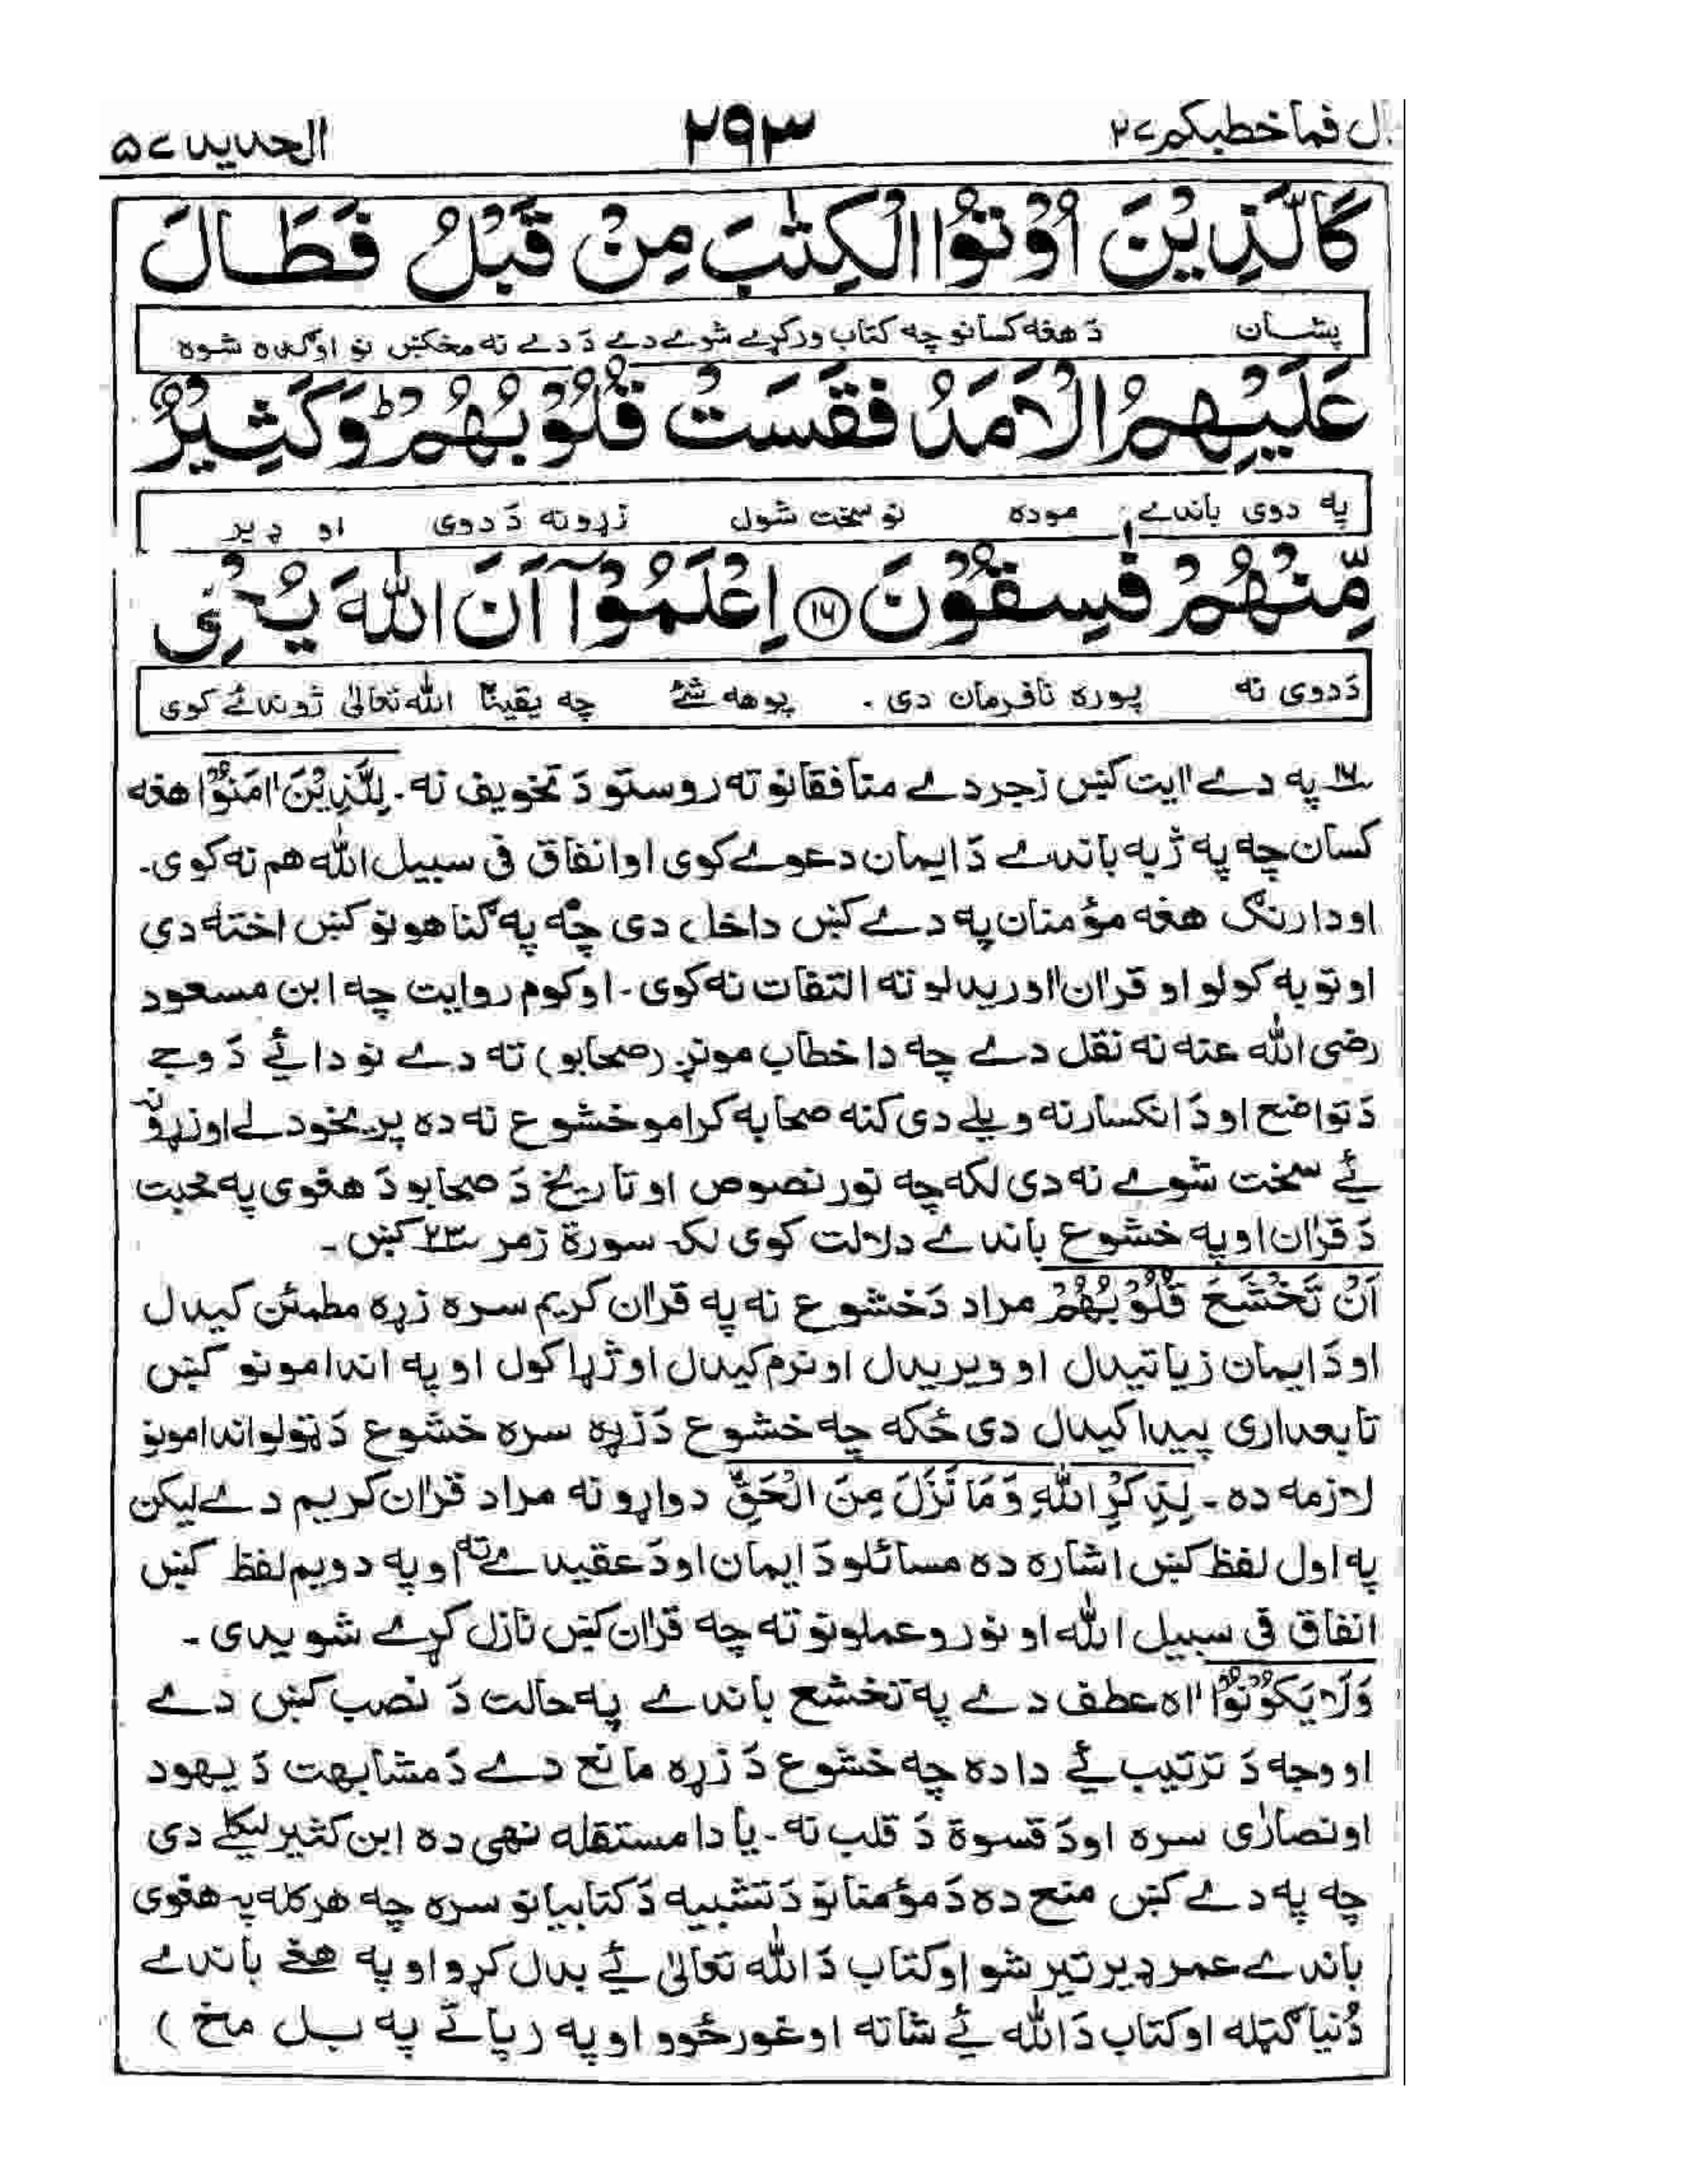 قال فما خطبكم ٢٧
٢٩٣
الحديد ٥٧
كَالَّذِيْنَ اُوْتُوا الْكِتٰبَ مِنْ قَبْلُ فَطَالَ
پشان دَ هغه کسانو چه کتاب ورکړے شوے دے دَ دے نه مخکښ نو اوګده شوه
عَلَيْهِمُ الْاَمَدُ فَقَسَتْ قُلُوْبُهُمْ ؕ وَكَثِيْرٌ
په دوی باندے موده نو سخت شول زړونه دَ دوی او ډير
مِّنْهُمْ فٰسِقُوْنَ ⑯ اِعْلَمُوْٓا اَنَّ اللّٰهَ يُحْيِ
دَدوی نه پوره نافرمان دی . پوهه شئ چه يقيناً الله تعالىٰ ژوندئے کوی
١٦ په دے اٰيت کښ زجر دے منافقانو ته روستو دَ تخويف نه . لِلَّذِيْنَ اٰمَنُوْا هغه
کسان چه په ژبه باندے دَ ايمان دعوے کوی او انفاق فی سبيل الله هم نه کوی۔
او دارنګ هغه مؤمنان په دے کښ داخل دی چه په ګناهونو کښ اخته دی
او توبه کولو او قراٰن اوريدلو ته التفات نه کوی . او کوم روايت چه ابن مسعود
رضی الله عنه نه نقل دے چه دا خطاب مونږ (صحابو) ته دے نو دائے دَ وجے
دَ تواضع او دَ انکسار نه ويلے دی کنه صحابه کرامو خشوع نه ده پريخودلے او زړونه
ئے سخت شوے نه دی لکه چه نور نصوص او تاريخ دَ صحابو دَ هغوی په محبت
دَ قراٰن او په خشوع باندے دلالت کوی لکه سورة زمر ٢٣ کښ ۔
اَنْ تَخْشَعَ قُلُوْبُهُمْ مراد دَ خشوع نه په قراٰن کريم سره زړه مطمئن کيدل
او دَ ايمان زياتيدل او ويريدل او نرم کيدل او ژړا کول او په اندامونو کښ
تابعداری پيدا کيدل دی ځکه چه خشوع دَ زړه سره خشوع دَ ټولو اندامونو
لازمه ده ۔ لِذِكْرِ اللّٰهِ وَمَا نَزَلَ مِنَ الْحَقِّ دواړو نه مراد قراٰن کريم دے ليکن
په اول لفظ کښ اشاره ده مسائلو دَ ايمان او دَ عقيدے ته او په دويم لفظ کښ
انفاق فی سبيل الله او نورو عملونو ته چه قراٰن کښ نازل کړے شويدی ۔
وَلَا يَكُوْنُوْا اه عطف دے په تخشع باندے په حالت دَ نصب کښ دے
او وجه دَ ترتيب ئے دا ده چه خشوع دَ زړه مانع دے دَ مشابهت دَ يهود
او نصاریٰ سره او دَ قسوة دَ قلب نه ۔ يا دا مستقله نهی ده ابن کثير ليکلے دی
چه په دے کښ منع ده دَ مؤمنانو دَ تشبيه دَ کتابيانو سره چه هر کله په هغوی
باندے عمر ډير تير شو او کتاب دَ الله تعالىٰ ئے بدل کړو او په هغے باندے
دُنيا ګټله او کتاب دَ الله ئے شاته اوغورځوو او په رپائے په بل مخ )